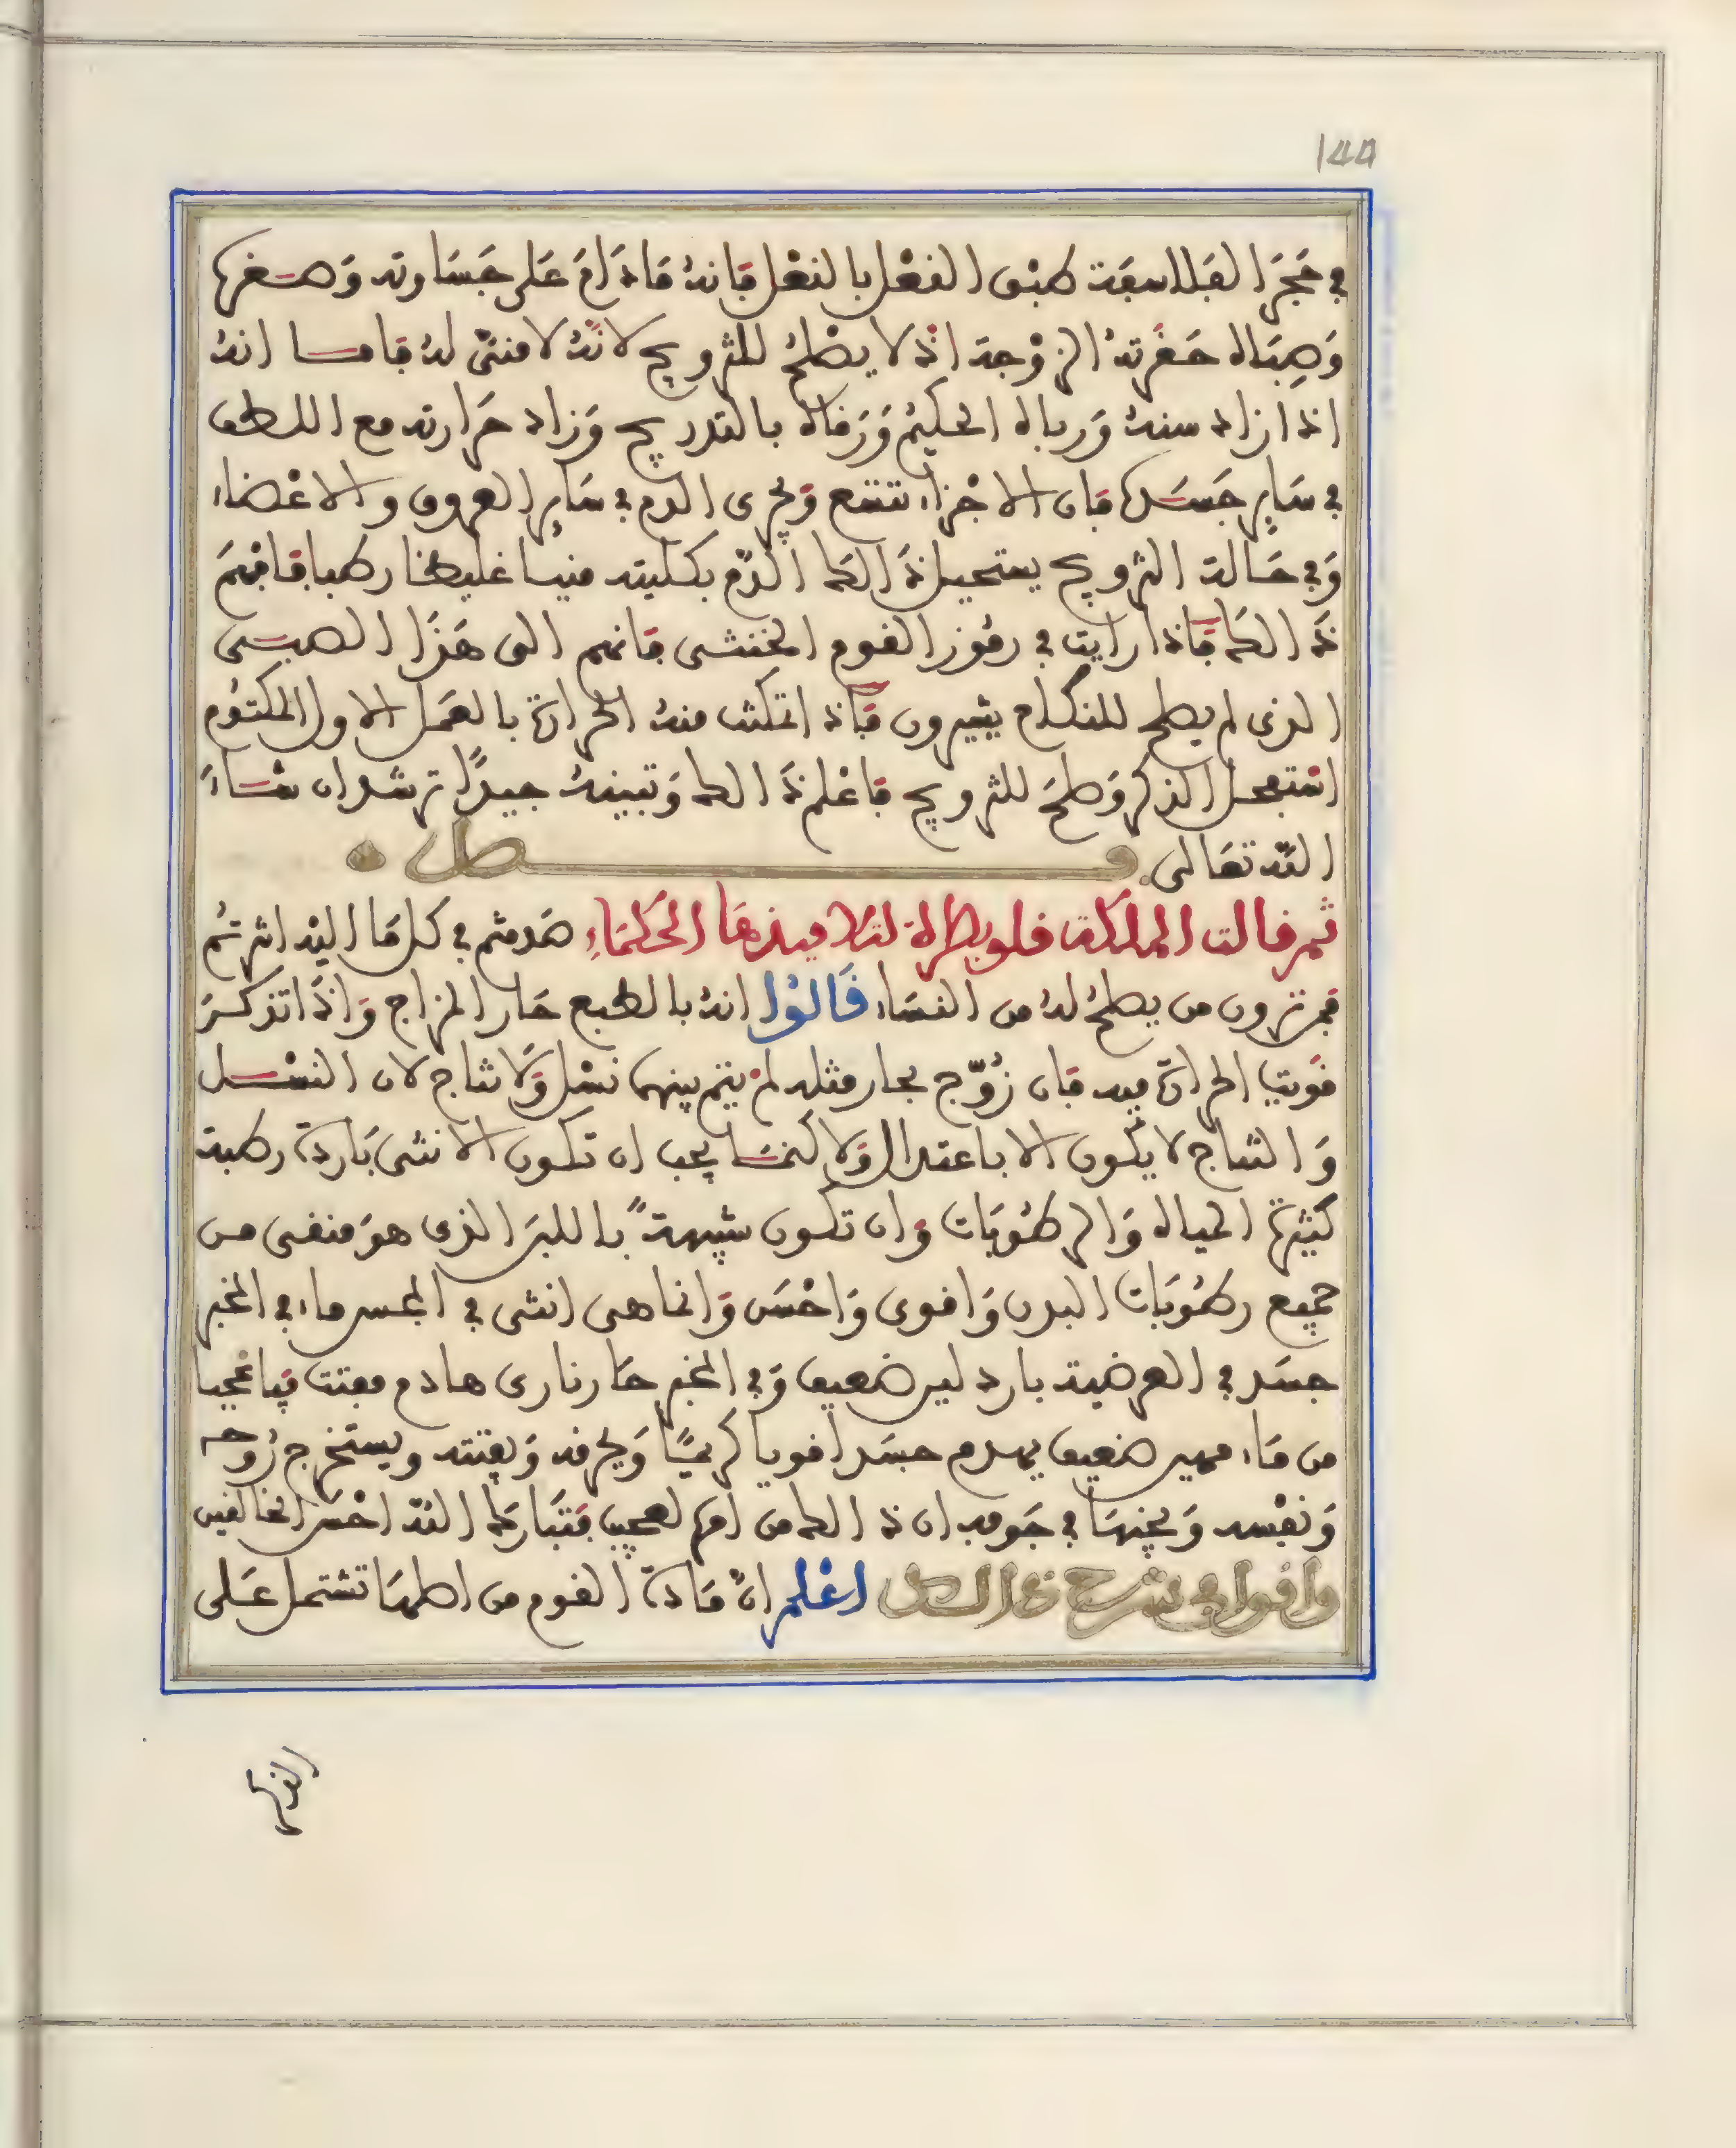 144
في حَجَر الفلاسفة طبق النعْل بالنعْل فانهُ مَادَامَ عَلى جَسَاوته وَصغره
وَصِباه حَضرتهُ الزوْجة اذ لا يصْلحُ للتزويج لانهُ لا منيّ لهُ فاما انهُ
اذا زاد سنهُ وَرباه الحكيْم وَرَقاه بالتدريج وَزاد حَرارته مع اللطف
في سَاير جَسَده فان الاجْزاء تتسع وَيجرى الدم في سَاير العروق والاعْضاء
وَفي حَالة التزويج يستحيل ذَالك الدّم بكليته منيا غليظا رطبا فافهَم
ذَالك فاذا رايت في رموز القوم الخنثى فانهم الى هَذا الصبى
الذى لم يصلح للنكاح يشيرون فاذا تمكنت منهُ الحرارة بالعمَل الاول المكتوُم
استفحل الذكر وَصلحَ للتزويج فاعْلم ذَالك وَتبينهُ جيدًا ترشد ان شاءَ
اللّه تعَالى فصل
ثم قالت الملكة قلوبطرة لتلاميذهَا الحكمَاءِ صَدقتم في كل مَا اليْه اشرتُم
فمن ترون من يصلحُ لهُ من النسَاء قَالوُا انهُ بالطبع حَار المزاج وَاذَا تذكرَ
قوَيت الحرارة فيه فان زُوّج بحار مثله لمْ يتم بينهما نسْل وَلا نتاج لان النسْل
وَالنتاج لا يكون الا باعتدال وَلاكنمَا يجب ان تكون الانثى بَاردة رطبة
كثيْرة المياه وَالرطوُبَات وَان تكون شبيهةً باللبَن الذى هوَ منقى من
جميع رطوُبَات البدن وَاقوى وَاحْسَن وَانما هى انثى في المجس ماء في المخبر
جسَد في العرضية بارد لين ضعيف وَفي المخبر حَار نارى هادم مفتت فيا عجبا
من مَاء مهين ضعيف يهدم جسَدا قويا كريمًا وَيحرقه وَيفتته ويستخرج رُوحه
وَنفسه وَيجنهَا في جَوفه ان ذَالك من امر لعجيب فتبَارك اللّه احْسَن الخالقين
واقول في شرح ذالك اعْلم انّ مَادة القوم من اصلهَا تشتمل عَلى
القوة